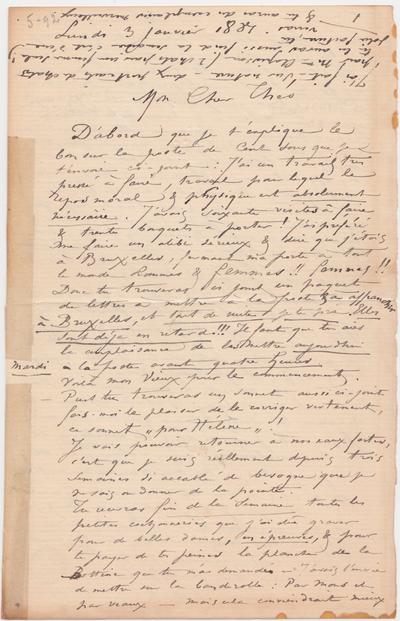 5-92
Lundi 3 Janvier 1881
Mon Cher Theo
D'abord que je t'explique le
bon sur la poste de Cent sous que je
t'envoie ci-joint : J'ai un travail très
pressé à faire, travail pour lequel le
repos moral & physique est absolument
nécessaire. J'avais soixante visites à faire
& trente bouquets à porter ! J'ai préféré
me faire un alibi sérieux & dire que j'étais
à Bruxelles,
le monde hommes & femmes !! femmes !!
Donc tu trouveras ci joint un paquet
de lettres à mettre à la poste & à affranchir
à Bruxelles, et tout de suite je te prie. Elles
sont déjà en retard !!! Il faut que tu aies
la complaisance de les mettre aujourd'hui
mardi
à la poste avant quatre heures
Voilà mon Vieux pour le commencement.
Puis tu trouveras un sonnet aussi ci-joint
fais-moi le plaisir de le corriger vertement,
ce sonnet „pour Hélène" !
Je vais pouvoir retourner à nos eaux fortes,
c'est que je suis réellement depuis trois
semaines si accablé de besogne que je
ne sais où donner de la pointe.
Tu recevras fin de la Semaine toutes les
petites cochonneries que j'ai dû graver
pour de belles dames, en épreuves, & pour
te payer de tes peines la planche de la
Bottine que tu m'as demandée
de mettre sur la banderolle. Par Monts et
par veaux — mais cela conviendrait mieux